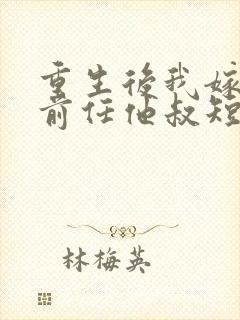 重生後我嫁
前任他叔短
林梅英